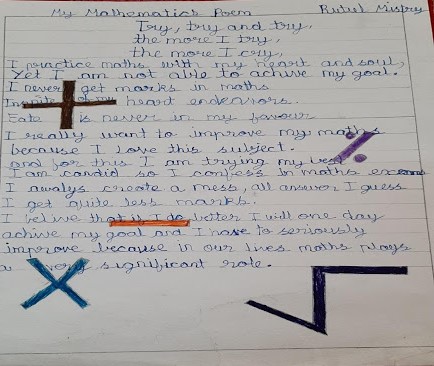 My Mathematics Poem Rutul Mistry
Try, try and try,
the more I try,
the more I cry,
I practice maths with my heart and soul,
Yet I am not able to achive my goal.
I never get marks in maths
Inspite of my heart endeavors.
Fate is never in my favour
I really want to improve my maths
because I love this subject.
and for this I am trying my best
I am candid so I confess In maths exams
I awalys create a mess, all answer I guess
I get quite less marks.
I belive that is I do better I will one day
achive my goal and I have to seriously
improve because in our lives maths plays
a very significant role.